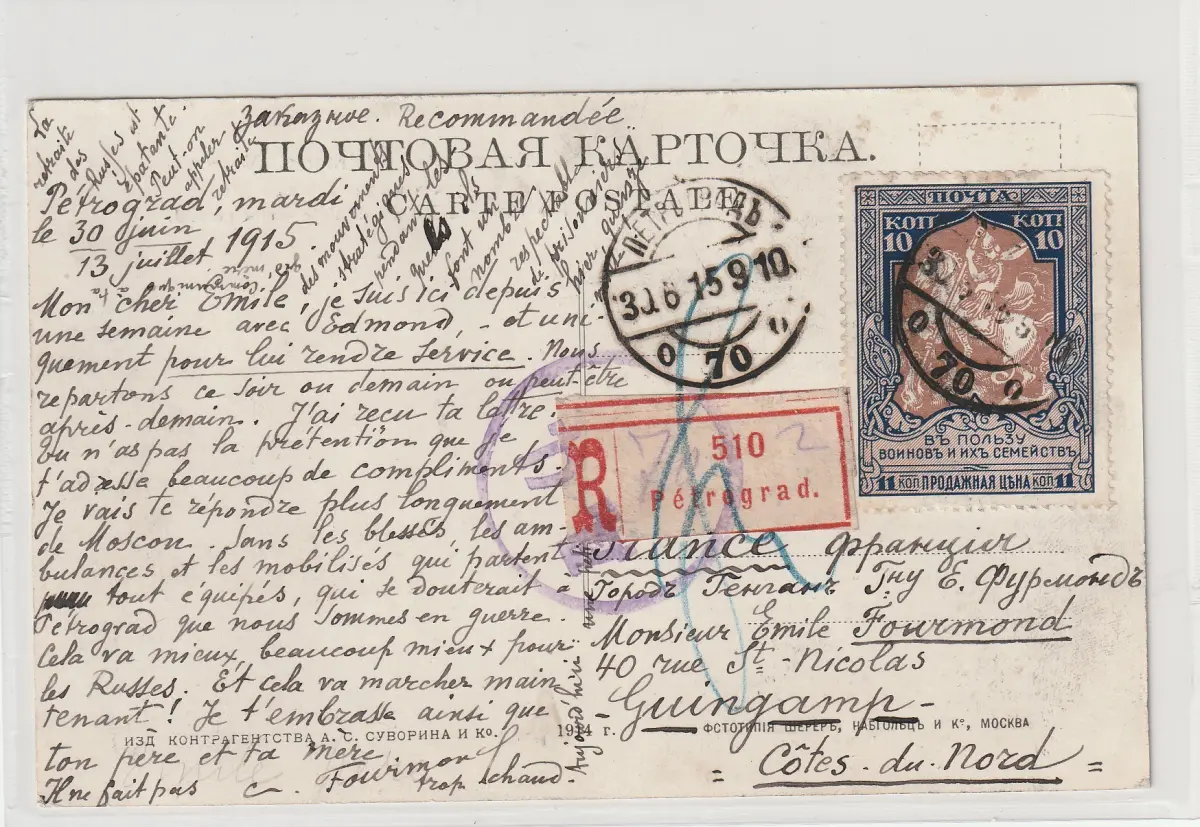 Заказное. Recommandée
ПОЧТОВАЯ КАРТОЧКА.
CARTE POSTALE
La
retraite
des
Russes est
épatante.
Peut-on
appeler
retraite
des mouvements
stratégiques
pendant les
quels ils
font un
nombre
respectable
de prisonniers
hier quinze
Pétrograd, mardi
le 30 juin
13 juillet 1915.
Mon cher Emile, je suis ici depuis
une semaine avec Edmond, - et uni-
quement pour lui rendre service. Nous
repartons ce soir ou demain ou peut-être
après-demain. J'ai reçu ta lettre.
Tu n'as pas la prétention que je
t'adresse beaucoup de compliments.
Je vais te répondre plus longuement
de Moscou. Sans les blessés, les am-
bulances et les mobilisés qui partent
tout équipés, qui se douterait à
Pétrograd que nous sommes en guerre.
Cela va mieux, beaucoup mieux pour
les Russes. Et cela va marcher main
tenant! Je t'embrasse ainsi que
ton père et ta mère
Il ne fait pas trop chaud
Aujourd'hui
ПЕТРОГРАДЪ
30 6 15 9 10
70
ПОЧТА
КОП КОП
10 10
ВЪ ПОЛЬЗУ
ВОИНОВЪ И ИХЪ СЕМЕЙСТВЪ
11 КОП ПРОДАЖНАЯ ЦѢНА КОП 11
70
R
510
Pétrograd.
France Франція
Городъ Генганъ Гну Е. Фурмондъ
Monsieur Emile Fourmond
40 rue St-Nicolas
- Guingamp -
= Côtes-du-Nord =
ИЗД КОНТРАГЕНТСТВА А. С. СУВОРИНА И Ко. 1914 г. ФОТОТИПІЯ ШЕРЕРЪ, НАБГОЛЬЦЪ И К°, МОСКВА